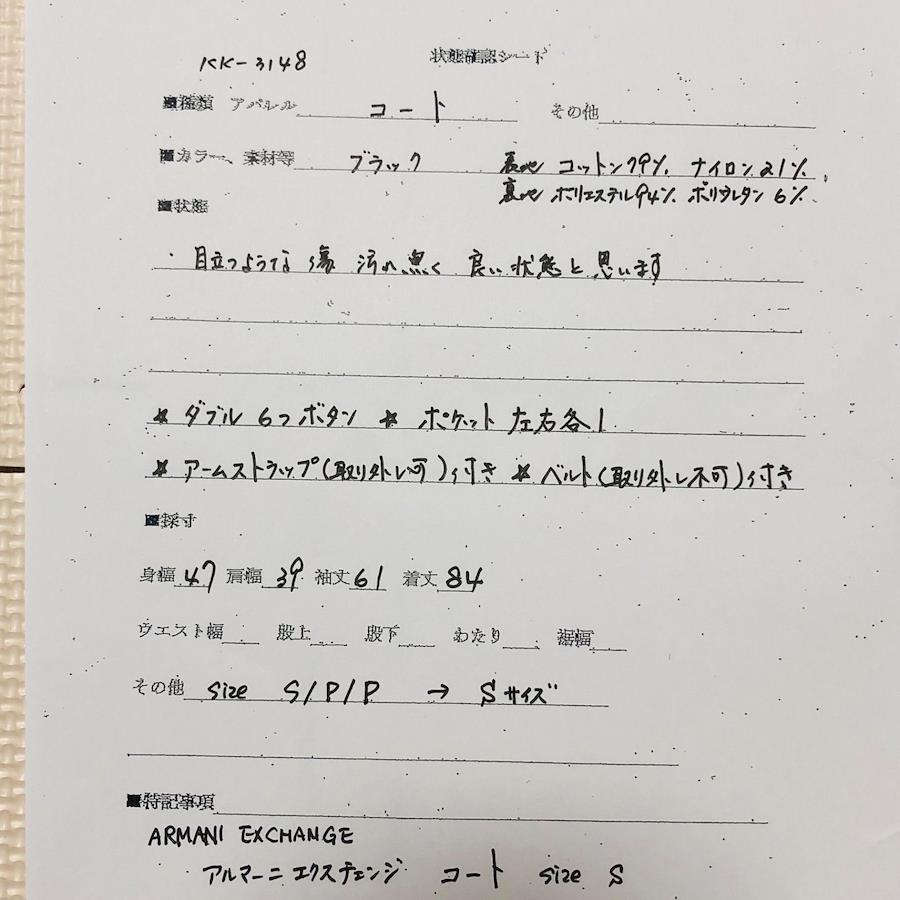 KK-3148
状態確認シート
■種類 アパレル コート その他
■カラー、素材等 ブラック 表地 コットン79% ナイロン21%
裏地 ポリエステル94% ポリウレタン6%
■状態
・目立つような傷 汚れ無く 良い状態と思います
★ダブル6つボタン ★ポケット左右各1
★アームストラップ(取り外し可)付き ★ベルト(取り外し不可)付き
■採寸
身幅47 肩幅39 袖丈61 着丈84
ウエスト幅 股上 股下 わたり 裾幅
その他 size S/P/P → Sサイズ
■特記事項
ARMANI EXCHANGE
アルマーニエクスチェンジ コート size S